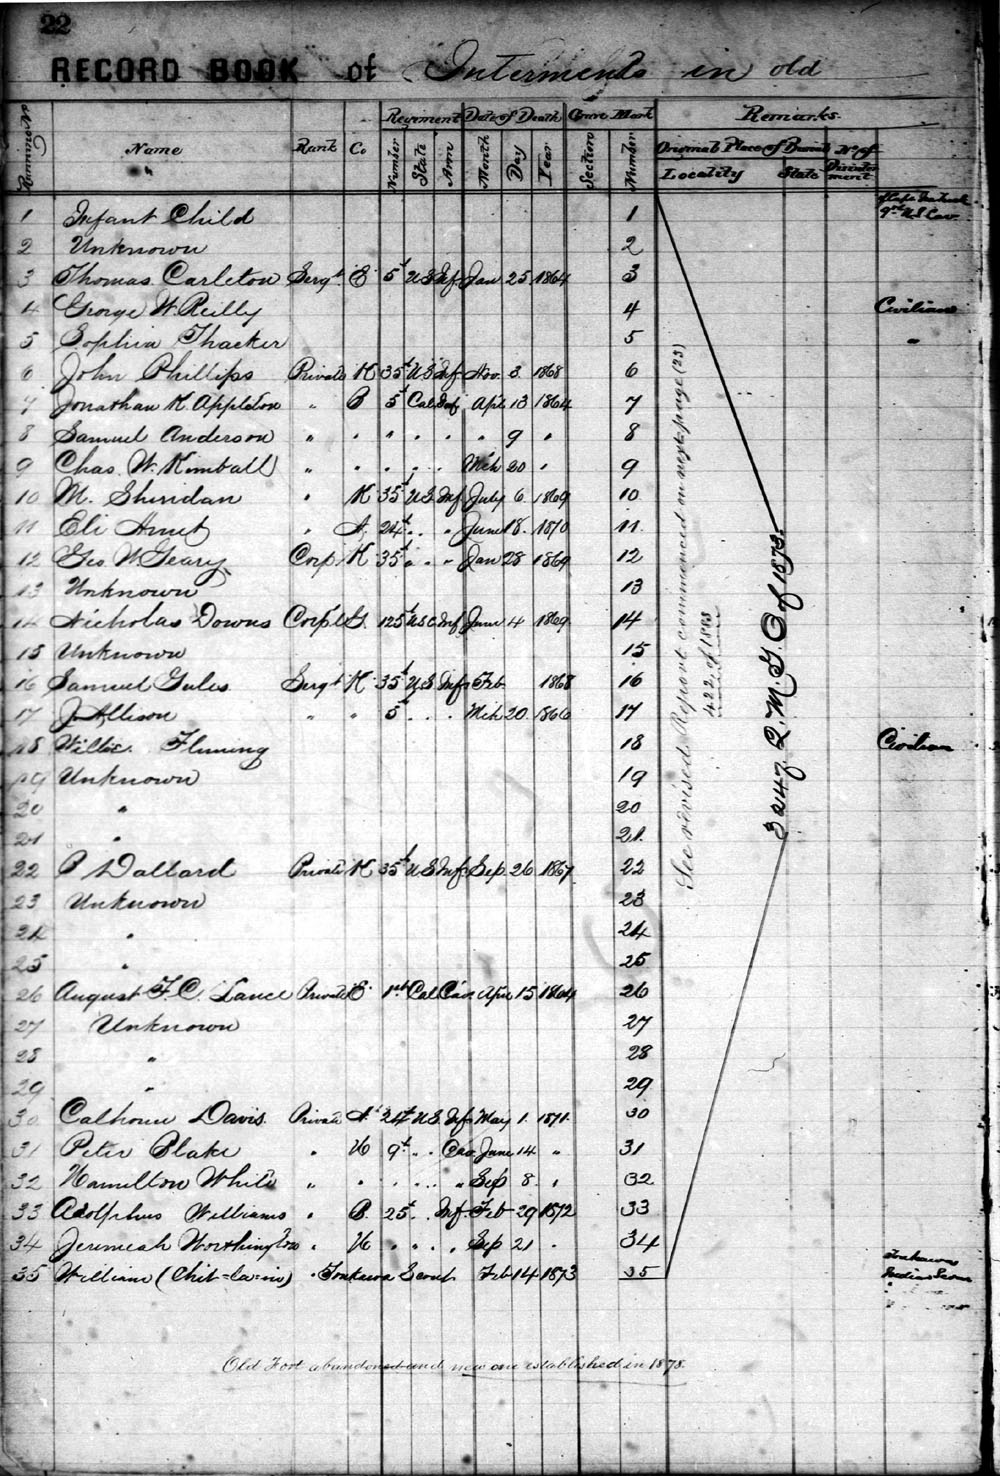 22
RECORD BOOK of Interments in old
Running No Name Rank Co Regiment Date of Death Grave Mark Remarks.
Number State Arm Month Day Year Section Number Original Place of Burial No. of Disinterment
Locality State
1 Infant Child 1 9th U.S. Cav.
2 Unknown 2
3 Thomas Carleton Sergt. E 5t U S Inf Jan 25 1864 3
4 George W. Reilly 4 Civilian
5 Sophia Thacker 5 "
6 John Phillips Private K 35t U S Inf. Nov. 3. 1868 6
7 Jonathan K. Appleton " B 5t Cal Inf Apl 13 1864 7
8 Samuel Anderson " " " " " " 9 " 8
9 Chas. W. Kimball " " " " " Mch 20 " 9
10 M. Sheridan " K 35t U S Inf July 6 1869 10
11 Eli " A. 24t " " June 18. 1870 11.
12 Geo W Geary Corp K 35t " " " Jan 28 1869 12
13 Unknown 13
14 Nicholas Downs Corpl G. 125t U S C Inf June 4 1869 14
15 Unknown 15
16 Samuel Giles Sergt K 35t U S Inf Feb 1868 16
17 J. Allison " " 5t " " Mch 20 1866 17
18 Willie Fleming 18 Civilian
19 Unknown 19
20 " 20
21 " 21.
22 P Dallard Private K 35t U S Inf Sep 26 1867 22
23 Unknown 23
24 " 24
25 " 25
26 August F. C. Lance Private E 1st Cal Cav Apr 15 1864 26
27 Unknown 27
28 " 28
29 " 29
30 Calhoun Davis. Private A 24t U S Inf May 1. 1871. 30
31 Peter Blake " H 9t " " Cav June 14 " 31
32 Hamilton White " " " " " " Sep 8 " 32
33 Adolphus Williams " B. 25t " Inf. Feb 29 1872 33
34 Jeremiah Worthington " H " " " Sep 21 " 34
35 William (Chit-la-ni) " Tonkawa Scout Feb 14 1873 35 Tonkawa
Indian Scout
See revised Report commenced on next page (23)
422 of 1888
3247 Q. M. G. O of 1873.
Old Fort abandoned and new one established in 1878.